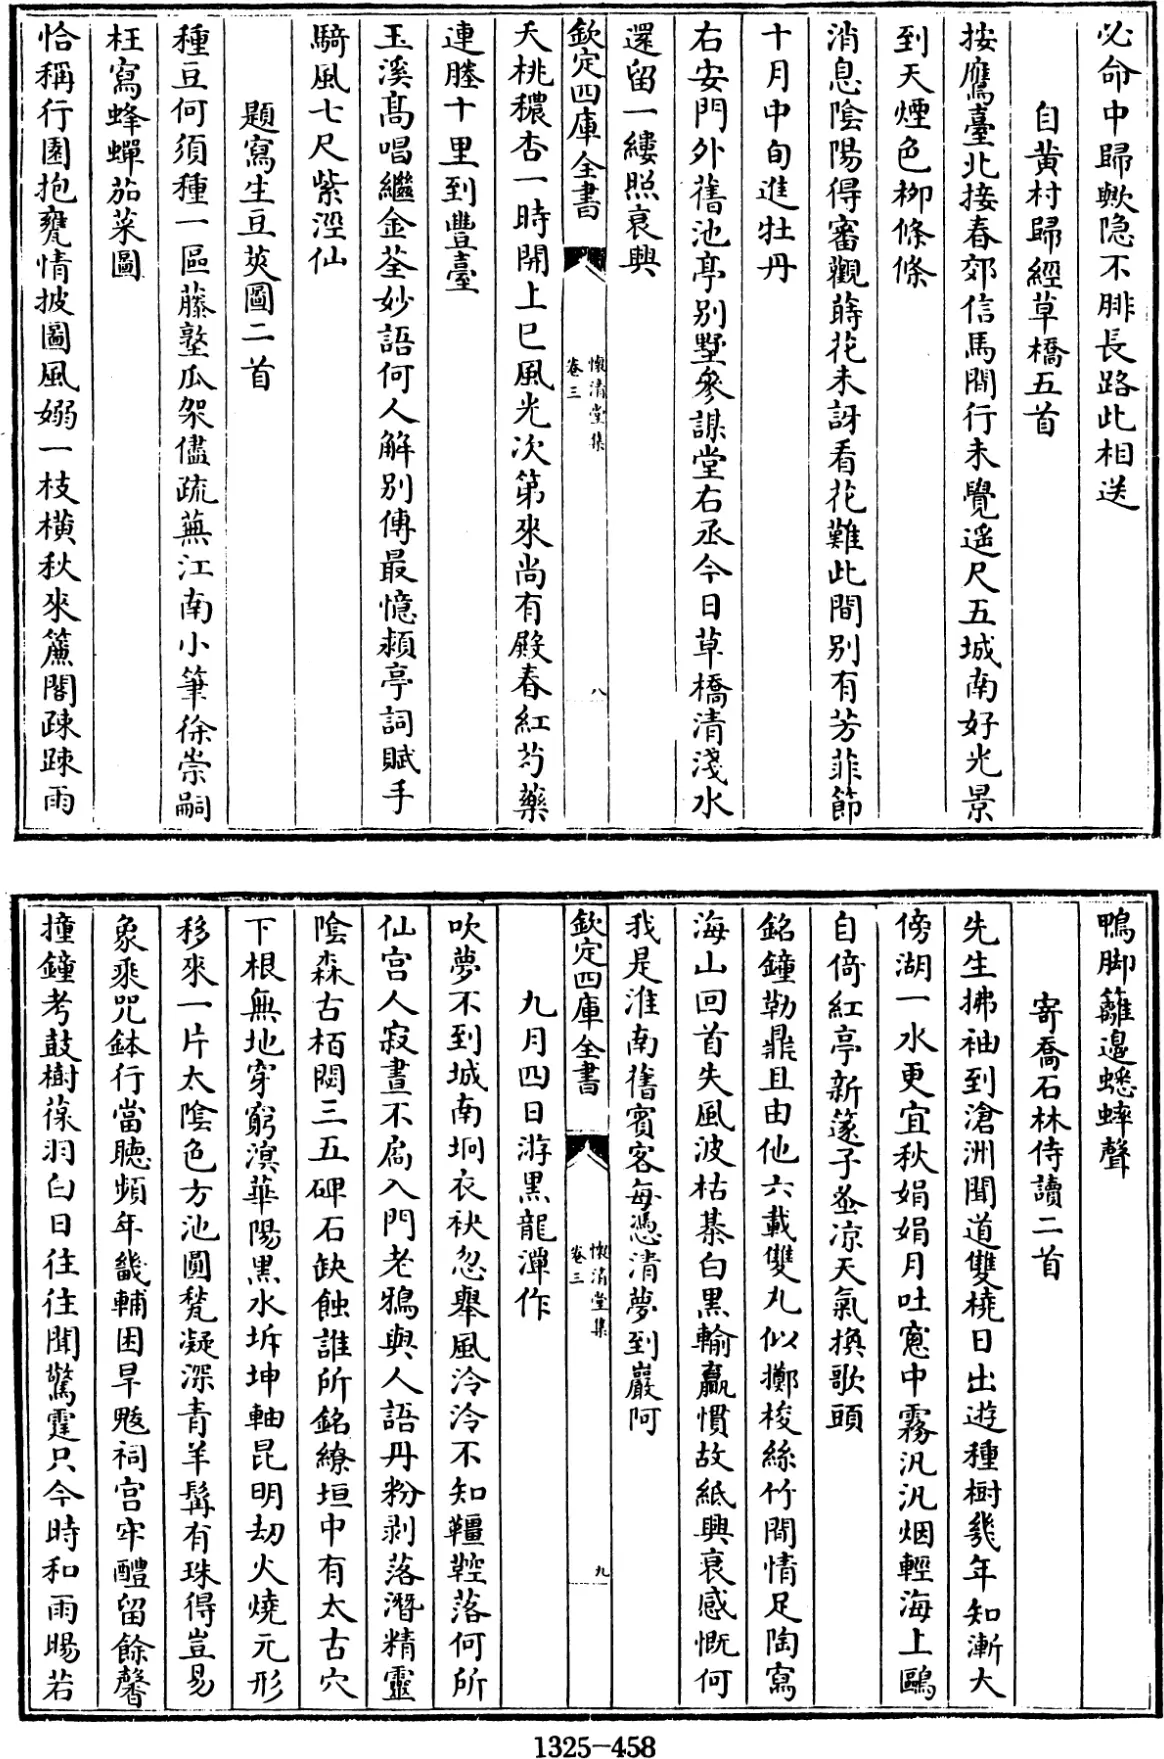 必命中歸歟隐不腓長路此相送
自黄村歸經草橋五首
按鷹臺北接春郊信馬閒行未覺遥尺五城南好光景
到天煙色柳條條
消息陰陽得審觀蒔花未訝看花難此間别有芳菲節
十月中旬進牡丹
右安門外舊池亭别墅參謀堂右丞今日草橋清淺水
還留一縷照衰興
欽定四庫全書
懷清堂集
卷三
八
夭桃穠杏一時開上巳風光次第來尚有殿春紅芍藥
連塍十里到豐臺
玉溪髙唱繼金荃妙語何人解别傳最憶頳亭詞賦手
騎風七尺紫涇仙
題寫生豆莢圖二首
種豆何須種一區藤墅瓜架儘疏蕪江南小筆徐崇嗣
枉寫蜂蟬茄菜圖
恰稱行園抱甕情披圖風嫋一枝横秋來簾閣疎疎雨
鴨脚籬邉蟋蟀聲
寄喬石林侍讀二首
先生拂袖到滄洲聞道雙橈日出遊種樹幾年知漸大
傍湖一水更宜秋娟娟月吐窻中霧汎汎烟輕海上鷗
自倚紅亭新篴子蚤凉天氣換歌頭
銘鐘勒鼎且由他六載雙丸似擲梭絲竹閒情足陶寫
海山回首失風波枯棊白黒輸贏慣故紙興衰感慨何
我是淮南舊賓客每憑清夢到巖阿
欽定四庫全書
懷清堂集
卷三
九
九月四日游黒龍潭作
吹夢不到城南坰衣袂忽舉風泠泠不知韁鞚落何所
仙宫人寂晝不扃入門老鴉與人語丹粉剥落潛精靈
陰森古栢閟三五碑石缺蝕誰所銘繚垣中有太古穴
下根無地穿窮溟華陽黒水坼坤軸昆明刼火燒元形
移來一片太陰色方池圓甃凝深青羊髯有珠得豈易
象乘咒鉢行當聴頻年畿輔困旱魃祠宫牢醴留餘馨
撞鐘考鼓樹葆羽白日往往聞驚霆只今時和雨暘若
1325-458